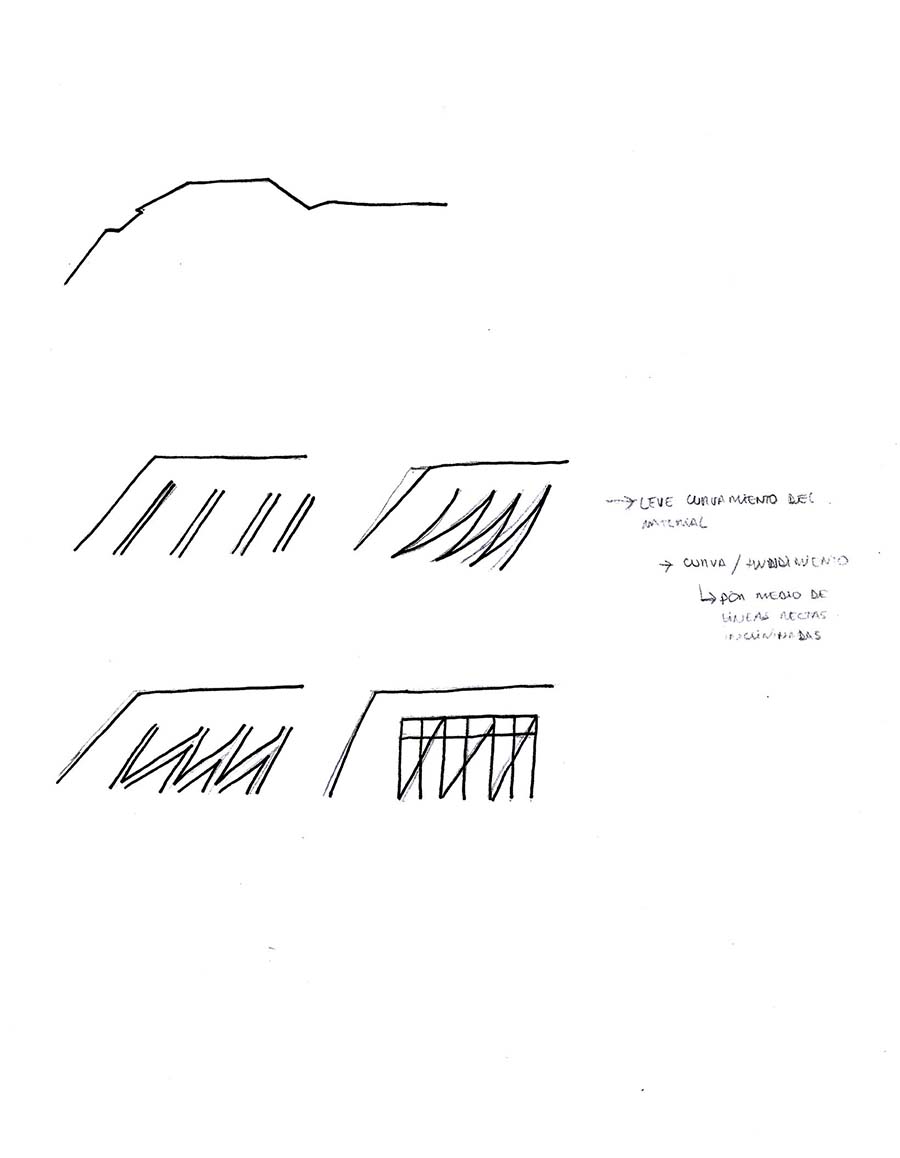 → LEVE CURVAMIENTO DEL
MATERIAL
→ CURVA / HUNDIMIENTO
↳ POR MEDIO DE
LÍNEAS RECTAS
INCLININADAS